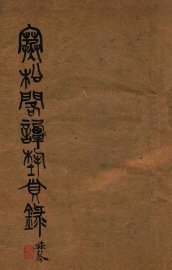 寒松閣譚藝瑣錄